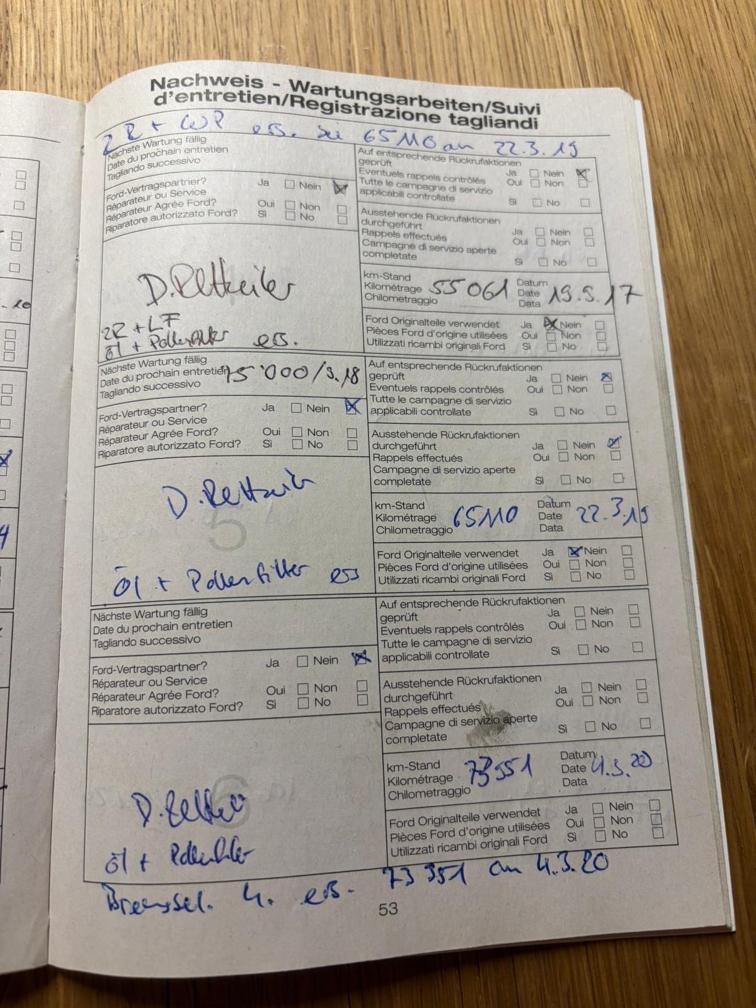 Nachweis - Wartungsarbeiten/Suivi
d'entretien/Registrazione tagliandi
ZR + WP ers. bei 65110 am 22.3.19
Nächste Wartung fällig
Date du prochain entretien
Tagliando successivo
Ford-Vertragspartner? Ja Nein
Réparateur ou Service
Réparateur Agrée Ford? Oui Non
Riparatore autorizzato Ford? Si No
Auf entsprechende Rückrufaktionen
geprüft Ja Nein
Eventuels rappels contrôlés Oui Non
Tutte le campagne di servizio
applicabili controllate Si No
Ausstehende Rückrufaktionen
durchgeführt Ja Nein
Rappels effectués Oui Non
Campagne di servizio aperte
completate Si No
km-Stand Datum
Kilométrage 55061 Date 19.5.17
Chilometraggio Data
Ford Originalteile verwendet Ja Nein
Pièces Ford d'origine utilisées Oui Non
Utilizzati ricambi originali Ford Si No
ZR + LF
Öl + Pollenfilter ers.
Nächste Wartung fällig
Date du prochain entretien 75'000/3.18
Tagliando successivo
Ford-Vertragspartner? Ja Nein
Réparateur ou Service
Réparateur Agrée Ford? Oui Non
Riparatore autorizzato Ford? Si No
Auf entsprechende Rückrufaktionen
geprüft Ja Nein
Eventuels rappels contrôlés Oui Non
Tutte le campagne di servizio
applicabili controllate Si No
Ausstehende Rückrufaktionen
durchgeführt Ja Nein
Rappels effectués Oui Non
Campagne di servizio aperte
completate Si No
km-Stand Datum
Kilométrage 65110 Date 22.3.19
Chilometraggio Data
Ford Originalteile verwendet Ja Nein
Pièces Ford d'origine utilisées Oui Non
Utilizzati ricambi originali Ford Si No
Öl + Pollenfilter ers
Nächste Wartung fällig
Date du prochain entretien
Tagliando successivo
Ford-Vertragspartner? Ja Nein
Réparateur ou Service
Réparateur Agrée Ford? Oui Non
Riparatore autorizzato Ford? Si No
Auf entsprechende Rückrufaktionen
geprüft Ja Nein
Eventuels rappels contrôlés Oui Non
Tutte le campagne di servizio
applicabili controllate Si No
Ausstehende Rückrufaktionen
durchgeführt Ja Nein
Rappels effectués Oui Non
Campagne di servizio aperte
completate Si No
km-Stand Datum
Kilométrage 73351 Date 4.3.20
Chilometraggio Data
Ford Originalteile verwendet Ja Nein
Pièces Ford d'origine utilisées Oui Non
Utilizzati ricambi originali Ford Si No
Öl + Pollenfilter
ers. 73351 am 4.3.20
53